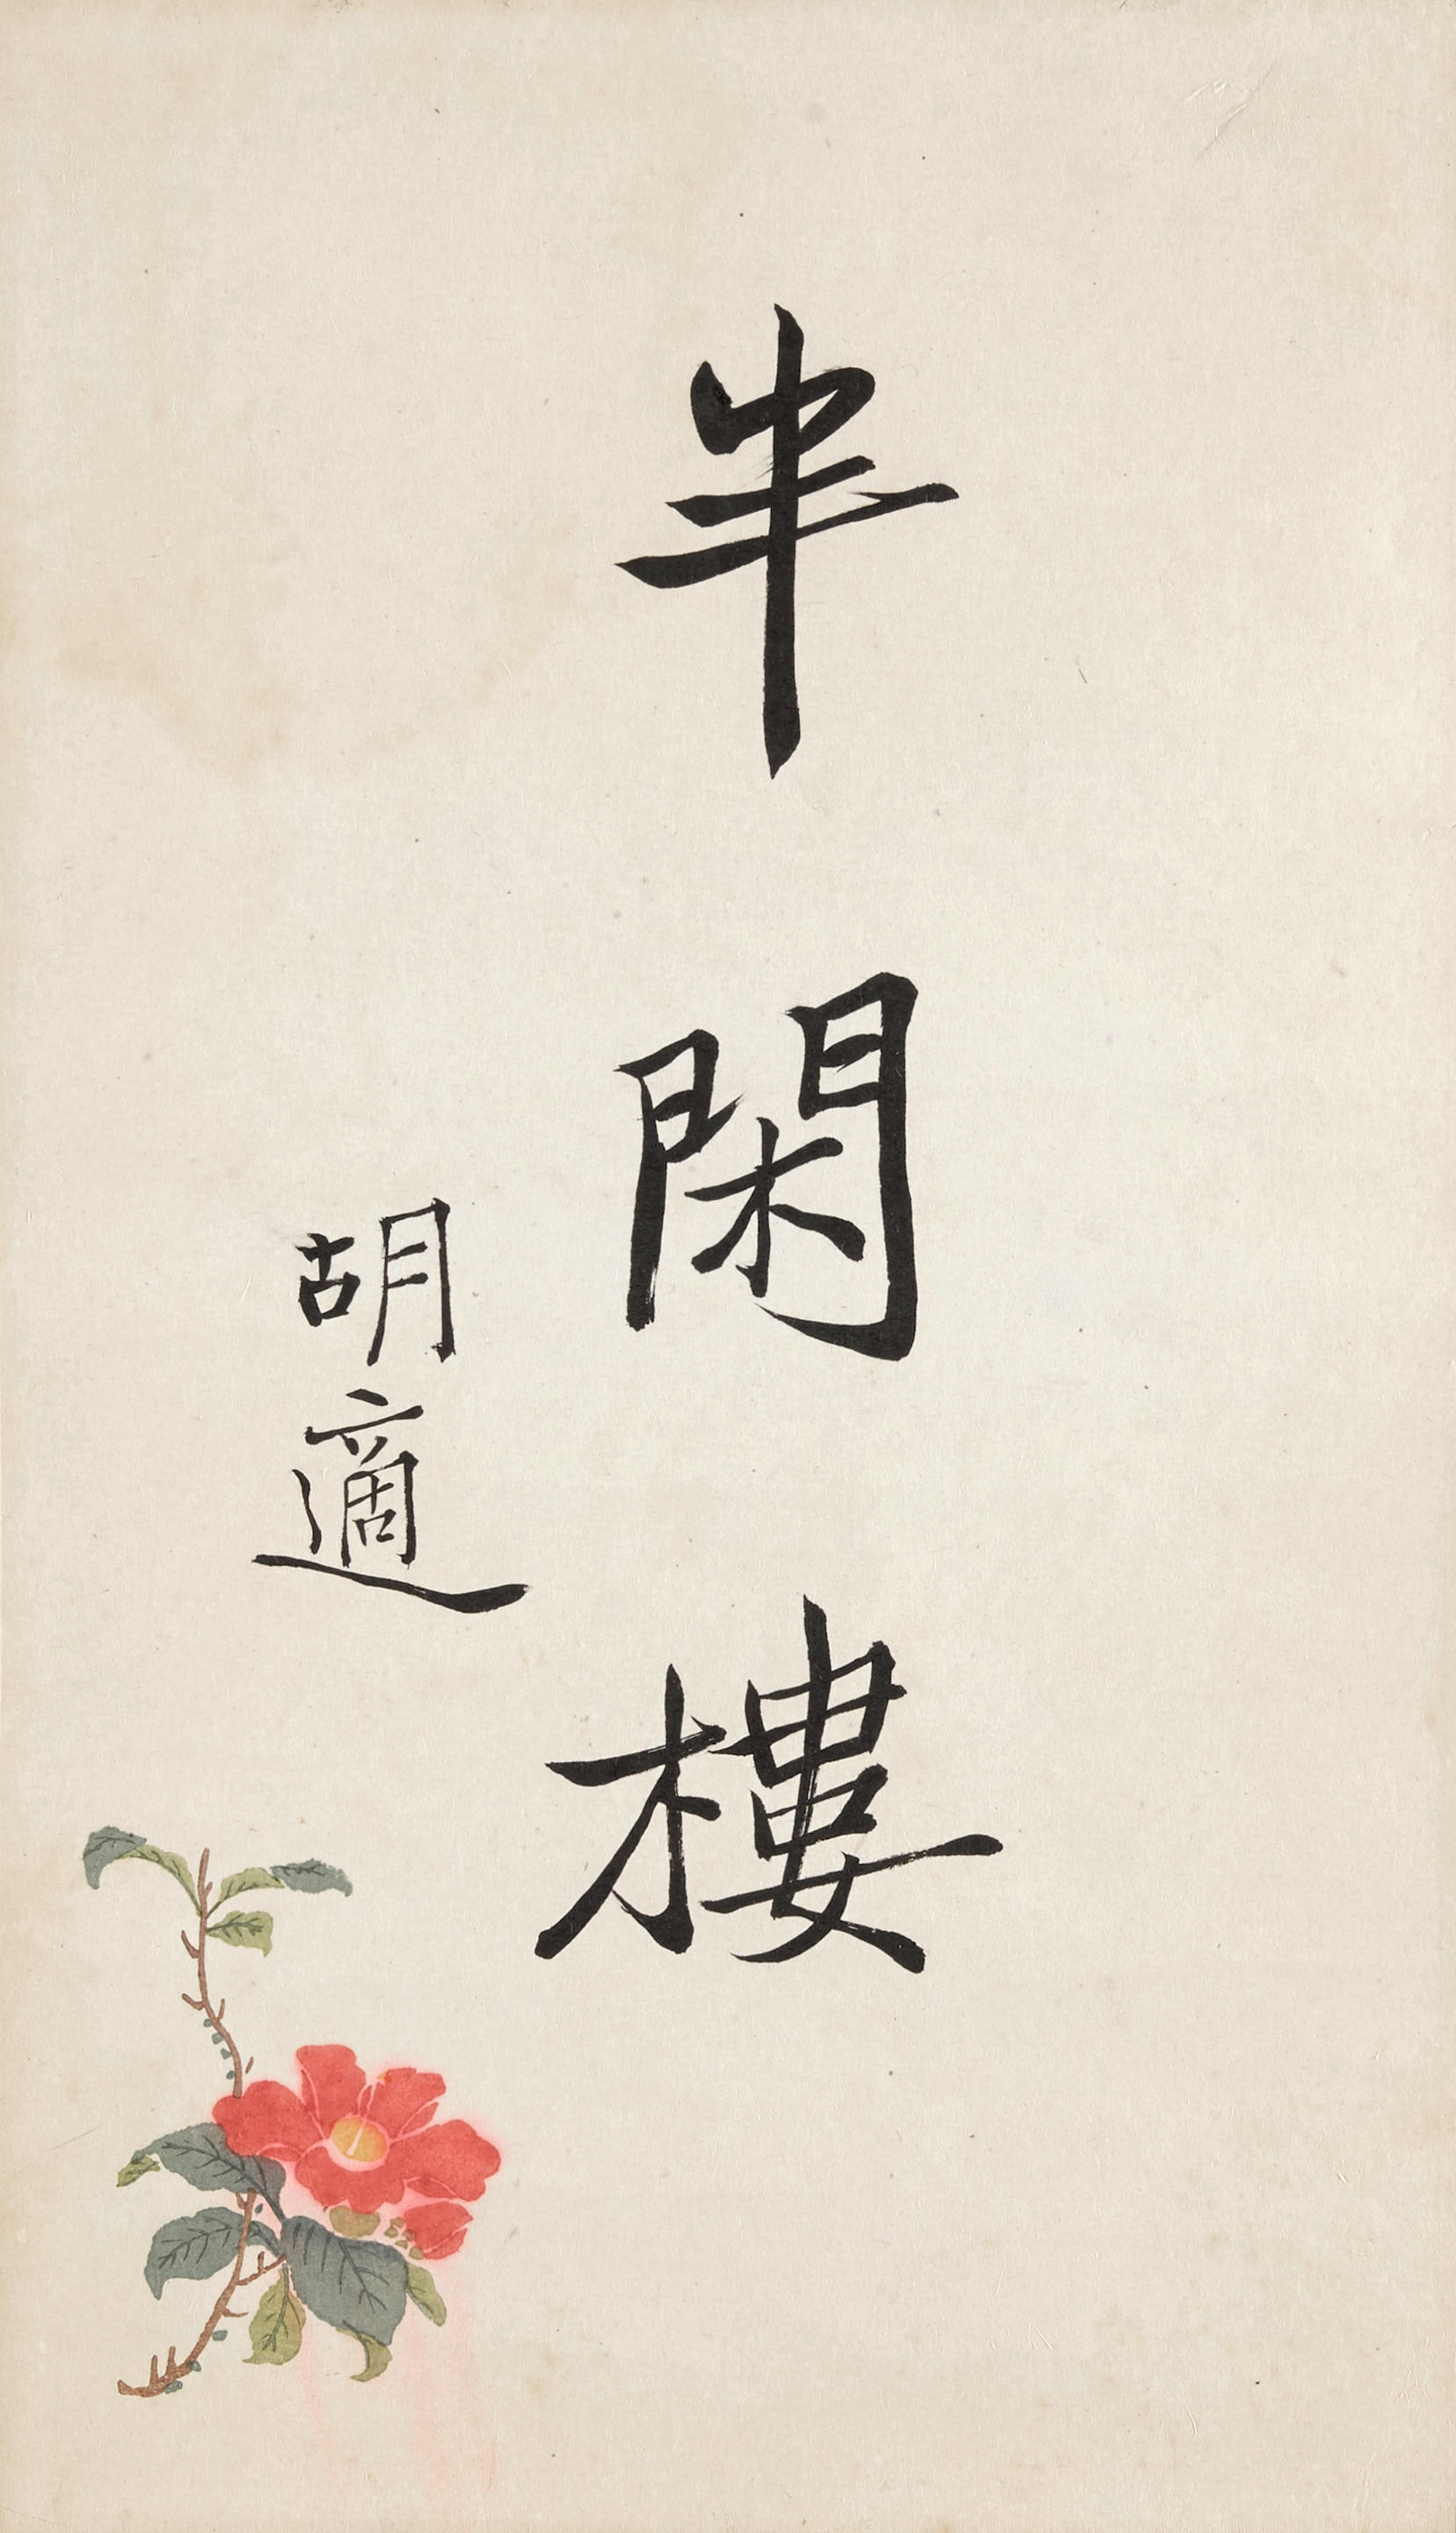 半閑樓
胡適